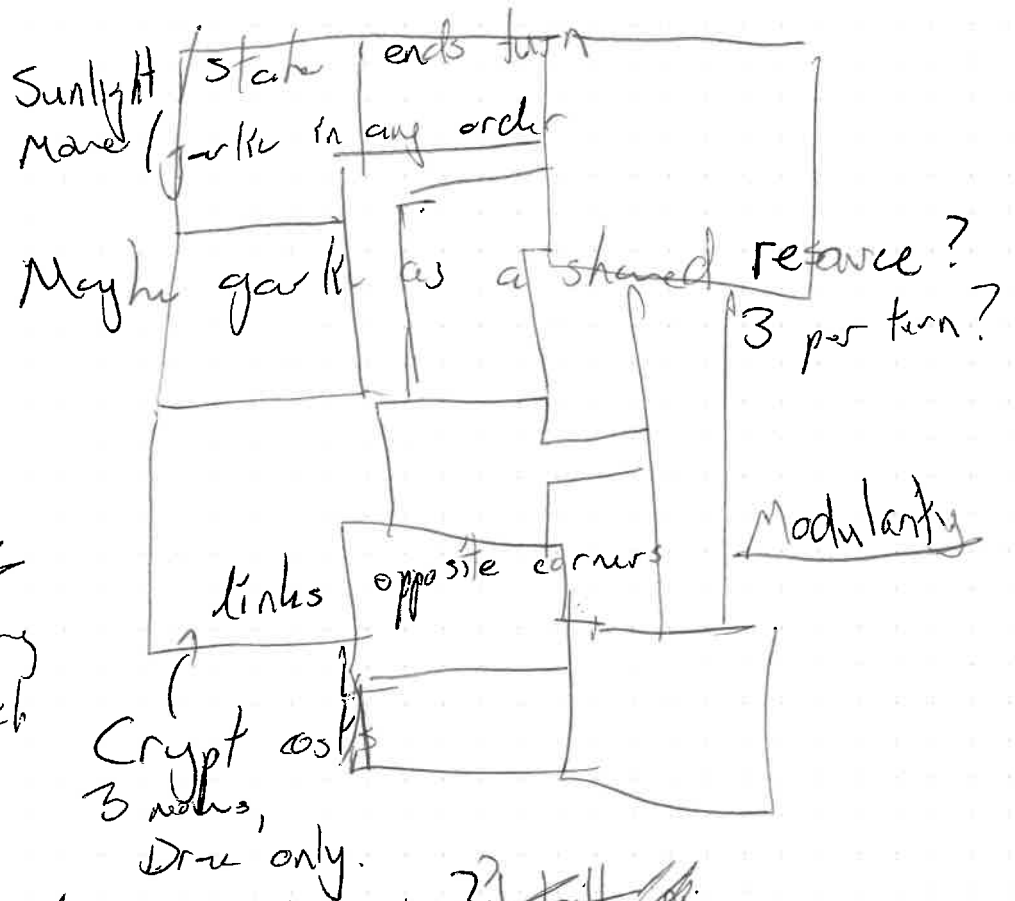 Sunlight state ends turn
Move / garlic in any order
Maybe garlic as a shared resource?
3 per turn?
Modularity
links opposite corners
Crypt costs
3 moves,
Drac only.